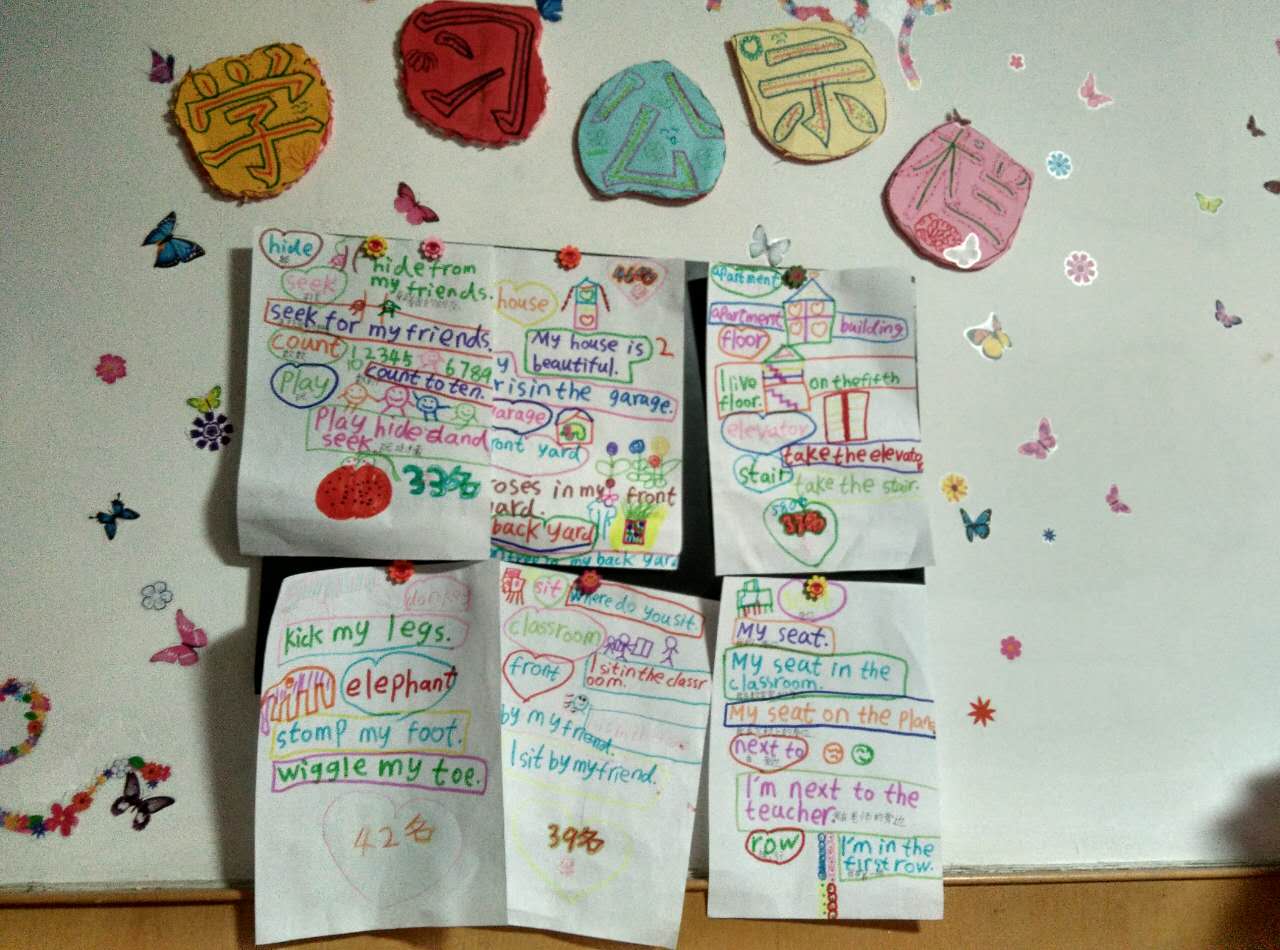 学习公示栏
hide
seek
hide from
my friends.
seek for my friends.
count
1 2 3 4 5 6 7 8 9
10
count to ten.
play
Play hide and
seek
33名
46名
house
My house is
beautiful.
2
r is in the garage.
arage
ront yard
oses in my front
ard.
back yard
my back yard
apartment
apartment building
floor
I live on the fifth
floor.
elevator
take the elevato
stair
take the stair.
37名
donkey
kick my legs.
elephant
stomp my foot.
wiggle my toe.
42名
sit
Where do you sit.
classroom
front
I sit in the classr
oom.
by my friend.
I sit by my friend.
39名
My seat.
My seat in the
classroom.
My seat on the plane
next to
I'm next to the
teacher.
row
I'm in the
first row.